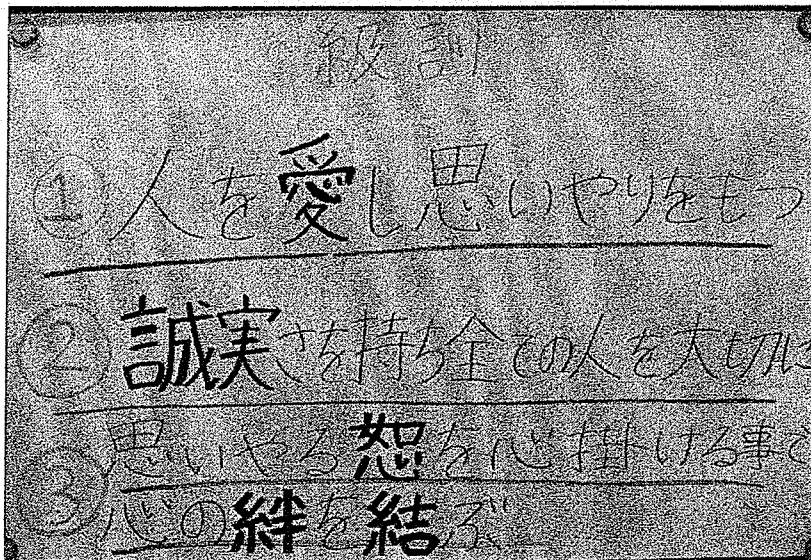 級訓
①人を愛し思いやりをもつ
②誠実さを持ち全ての人を大切に
③思いやる恕を心掛ける事で
心の絆を結ぶ